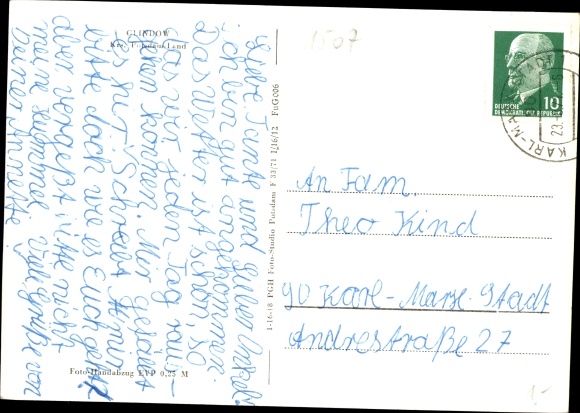 GLINDOW
Krs. Potsdam Land
Liebe Tante und lieber Onkel!
ich bin gut angekommen.
Das Wetter ist schön, so
das wir jeden Tag raus-
gehen können. Mir gefällt
es hier. Schreibt Ihr mir
bitte doch wie es Euch geht
aber vergeßt bitte nicht
meine
Viele Grüße von
Deiner Annette
Foto-Handabzug EVP 0,25 M
1-16-18 PGH Foto-Studio Potsdam F 33/71 I/16/12 FnG006
1507
DEUTSCHE
DEMOKRATISCHE REPUBLIK
10
KARL-M
23
An Fam.
Theo Kind
90 Karl-Marx-Stadt
Andrestraße 27
1,-